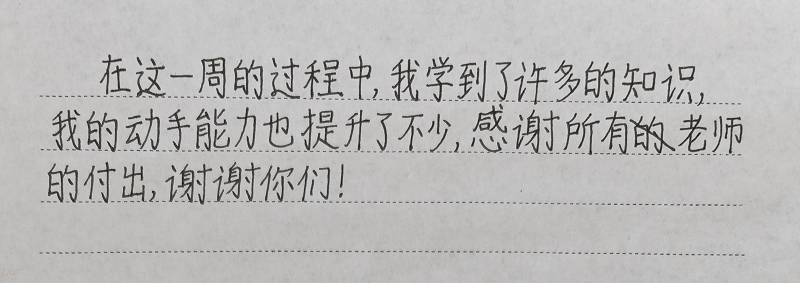 在这一周的过程中,我学到了许多的知识,
我的动手能力也提升了不少,感谢所有的老师
的付出,谢谢你们!